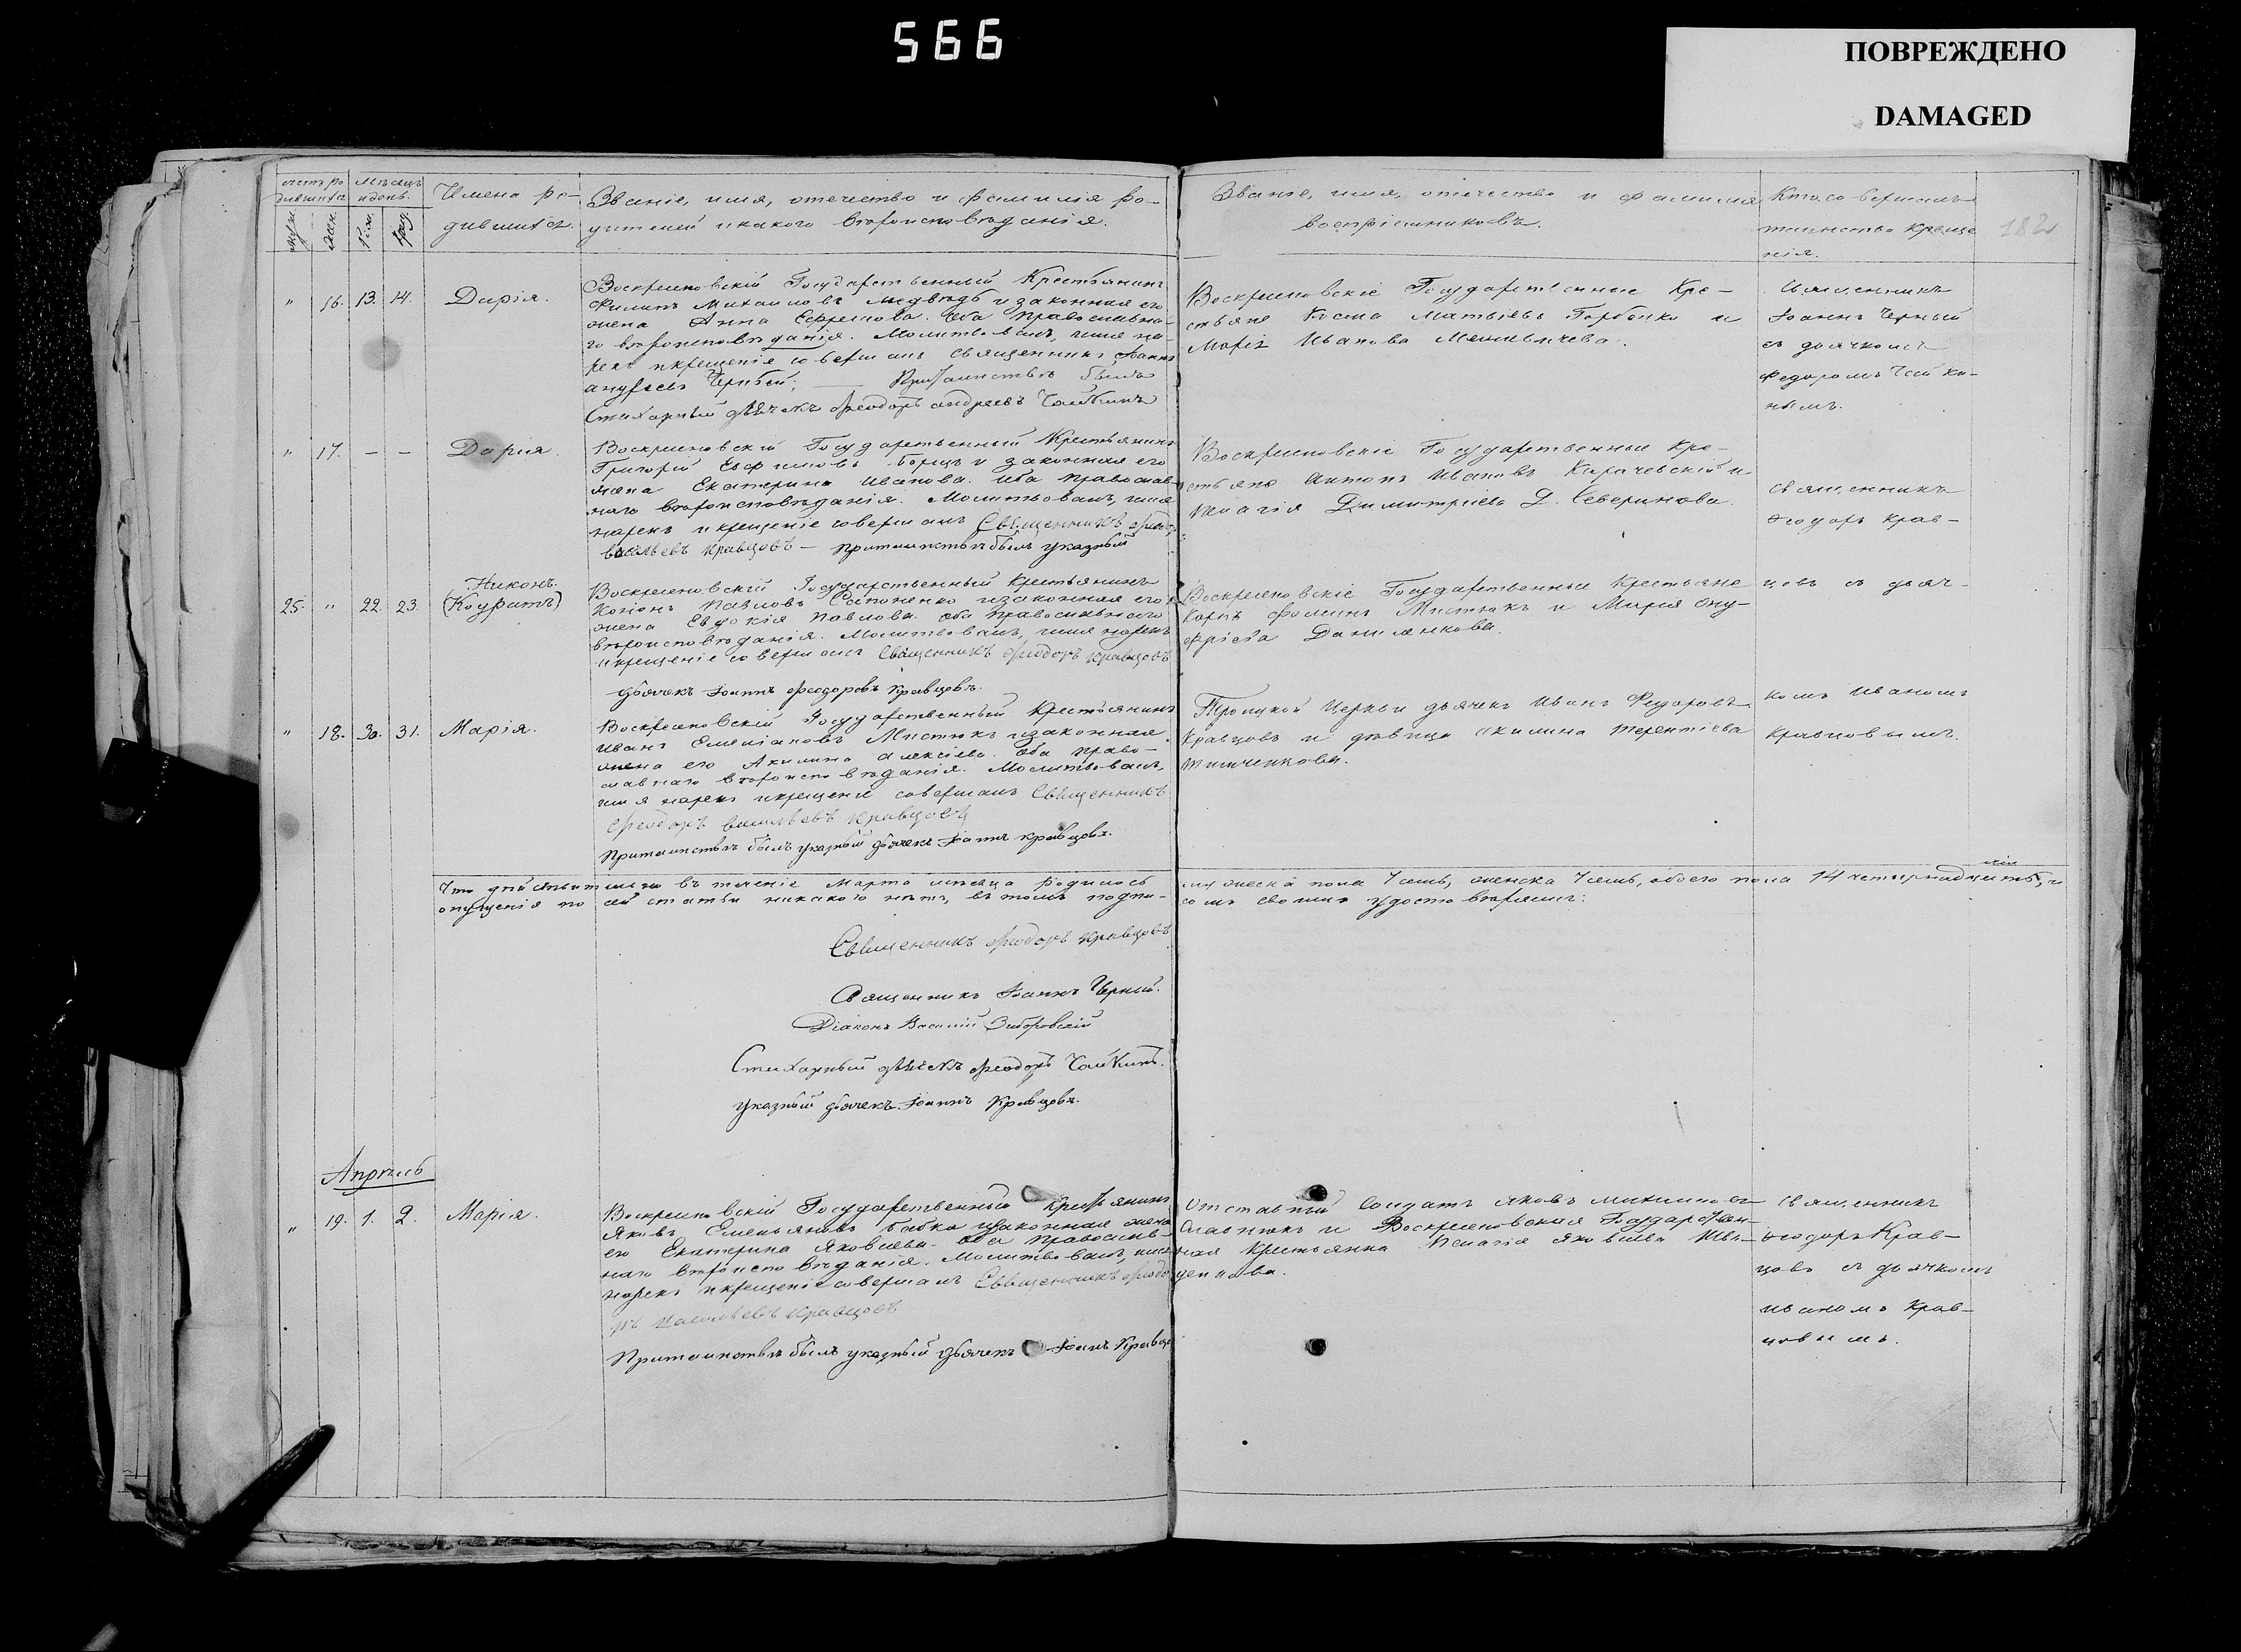 566
ПОВРЕЖДЕНО
DAMAGED
Имена ро-
дившихся.
Званіе, имя, отечество и фамилія ро-
дителей и какого вѣроисповѣданія.
Званіе, имя, отечество и фамилія
воспріемниковъ.
Кто совершалъ
таинство креще
нія.
182
" 16. 13. 14. Дарія.
Воскресеновскій Государственный Крестьянинъ
Филипъ Михаиловъ Медвѣдь и законная его
жена Анна Ефремова. Оба православна-
го вѣроисповѣданія. Молитвовалъ, имя на-
рекъ и крещеніе совершалъ священникъ Іоаннъ
Черный; При таинствѣ былъ
Стихарный дьячекъ Ѳеодоръ Андреевъ Чайкинъ
Воскресеновскіе Государственные Кре-
стьяне Косма Матвіевъ Горбонко и
Марія Иванова
Священникъ
Іоаннъ Черный
съ дьячкомъ
Федоромъ Чайки-
нымъ.
" 17. - - Дарія.
Воскресеновскій Государственный Крестьянинъ
Григорій Борецъ и законная его
жена Екатерина Иванова. Оба православ
наго вѣроисповѣданія. Молитвовалъ, имя
нарекъ и крещеніе совершалъ Священникъ Ѳеодоръ
Васильевъ Кравцовъ — при таинствѣ былъ указный
Воскресеновскіе Государственные Кре-
стьяне Антонъ Ивановъ Карачевскій и
Пелагія Димитріева Д. Северинова.
Священникъ
Ѳеодоръ Крав-
25. " 22. 23. Никонъ.
(Кодратъ)
Воскресеновскій Государственный Крестьянинъ
Павловъ Сапоненко и законная его
жена Евдокія Павлова. Оба православнаго
вѣроисповѣданія. Молитвовалъ, имя нарекъ
и крещеніе совершалъ Священникъ Ѳеодоръ Кравцовъ
дьячекъ Іоаннъ Ѳеодоровъ Кравцовъ.
Воскресеновскіе Государственные Крестьяне
Карпъ Фоминъ Мистюкъ и Марія Ону-
фріева Даниленкова.
цовъ съ дьяч-
" 18. 30. 31. Марія.
Воскресеновскій Государственный Крестьянинъ
Иванъ Емеліановъ Мистюкъ и законная
жена его Акилина Алексіева. Оба право-
славнаго вѣроисповѣданія. Молитвовалъ,
имя нарекъ и крещеніе совершалъ Священникъ
Ѳеодоръ Васильевъ Кравцовъ
При таинствѣ былъ указный дьячекъ Іоаннъ Кравцовъ.
Троицкой Церкви дьячекъ Иванъ Федоровъ
Кравцовъ и дѣвица Акилина Терентіева
Тимченкова.
комъ Иваномъ
Кравцовымъ.
Что дѣйствительно въ теченіе Марта мѣсяца родилось мужеска пола 7 семь, женска 7 семь, обоего пола 14 четырнадцать, и
опущенія по сей статьи никакого нѣтъ, въ томъ подпи-сомъ своимъ удостовѣряемъ:
Священникъ Ѳеодоръ Кравцовъ
Священникъ Іоаннъ Черный.
Діаконъ Василій Зиборовскій
Стихарный дьячекъ Ѳеодоръ Чайкинъ.
Указный дьячекъ Іоаннъ Кравцовъ.
Апрѣль
" 19. 1. 2. Марія.
Воскресеновскій Государственный Крестьянинъ
Яковъ Емельяновъ Бабка и законная жена
его Екатерина Яковлева. Оба православ-
наго вѣроисповѣданія. Молитвовалъ, имя
нарекъ и крещеніе совершалъ Священникъ Ѳеодо
ръ Васильевъ Кравцовъ
При таинствѣ былъ указный дьячекъ Іоаннъ Кравцо
Отставный Солдатъ Яковъ
Славнюкъ и Воскресеновская Государствен-
ная Крестьянка Пелагія Яковлева Шве-
ценкова.
Священникъ
Ѳеодоръ Крав-
цовъ съ дьячкомъ
Иваномъ Крав-
цовымъ.